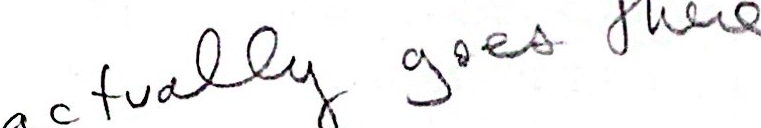 actually goes there